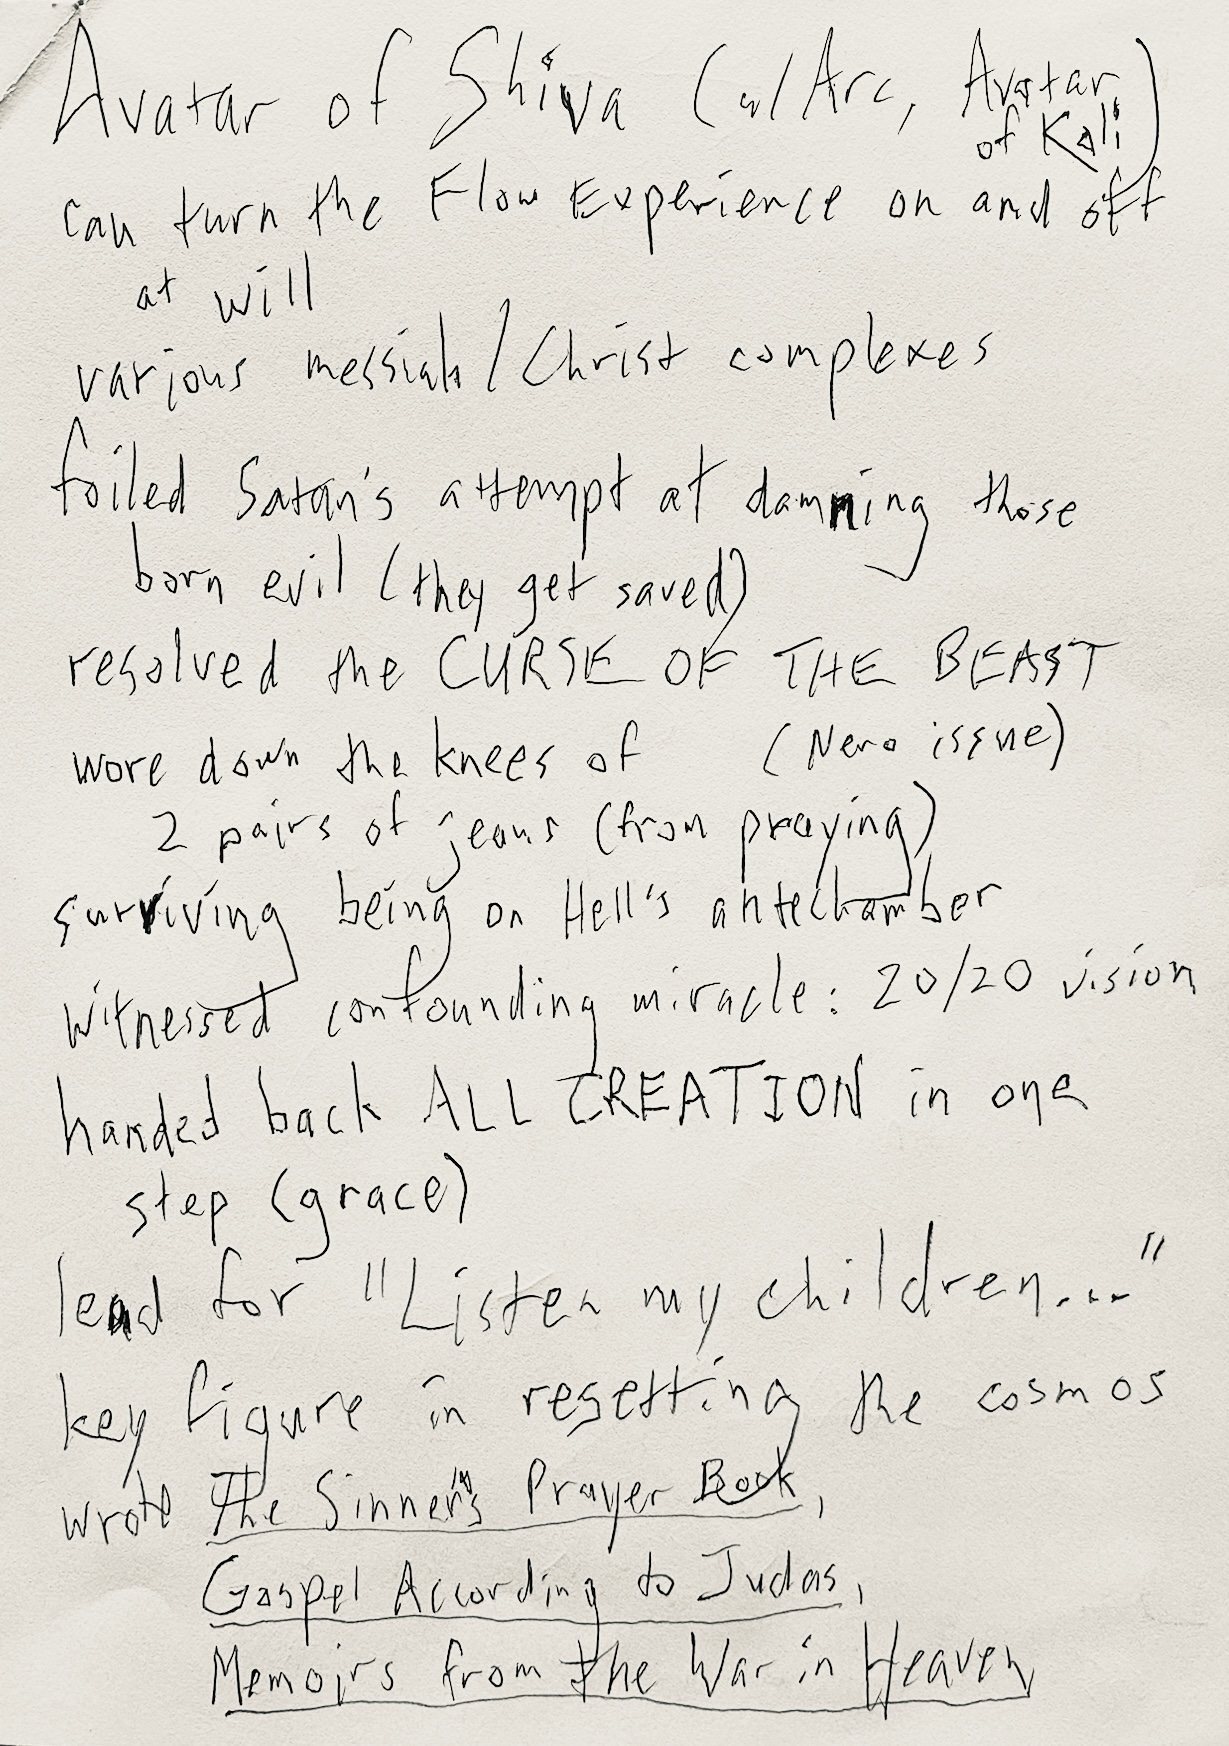 Avatar of Shiva (w/Arc, Avatar
of Kali)
can turn the Flow Experience on and off
at will
various messiah/Christ complexes
foiled Satan's attempt at damning those
born evil (they get saved)
resolved the CURSE OF THE BEAST
wore down the knees of (Nero issue)
2 pairs of jeans (from praying)
surviving being on Hell's antechamber
witnessed confounding miracle: 20/20 vision
handed back ALL CREATION in one
step (grace)
lead for "Listen my children..."
key figure in resetting the cosmos
wrote The Sinner's Prayer Book,
Gospel According to Judas,
Memoirs from the War in Heaven